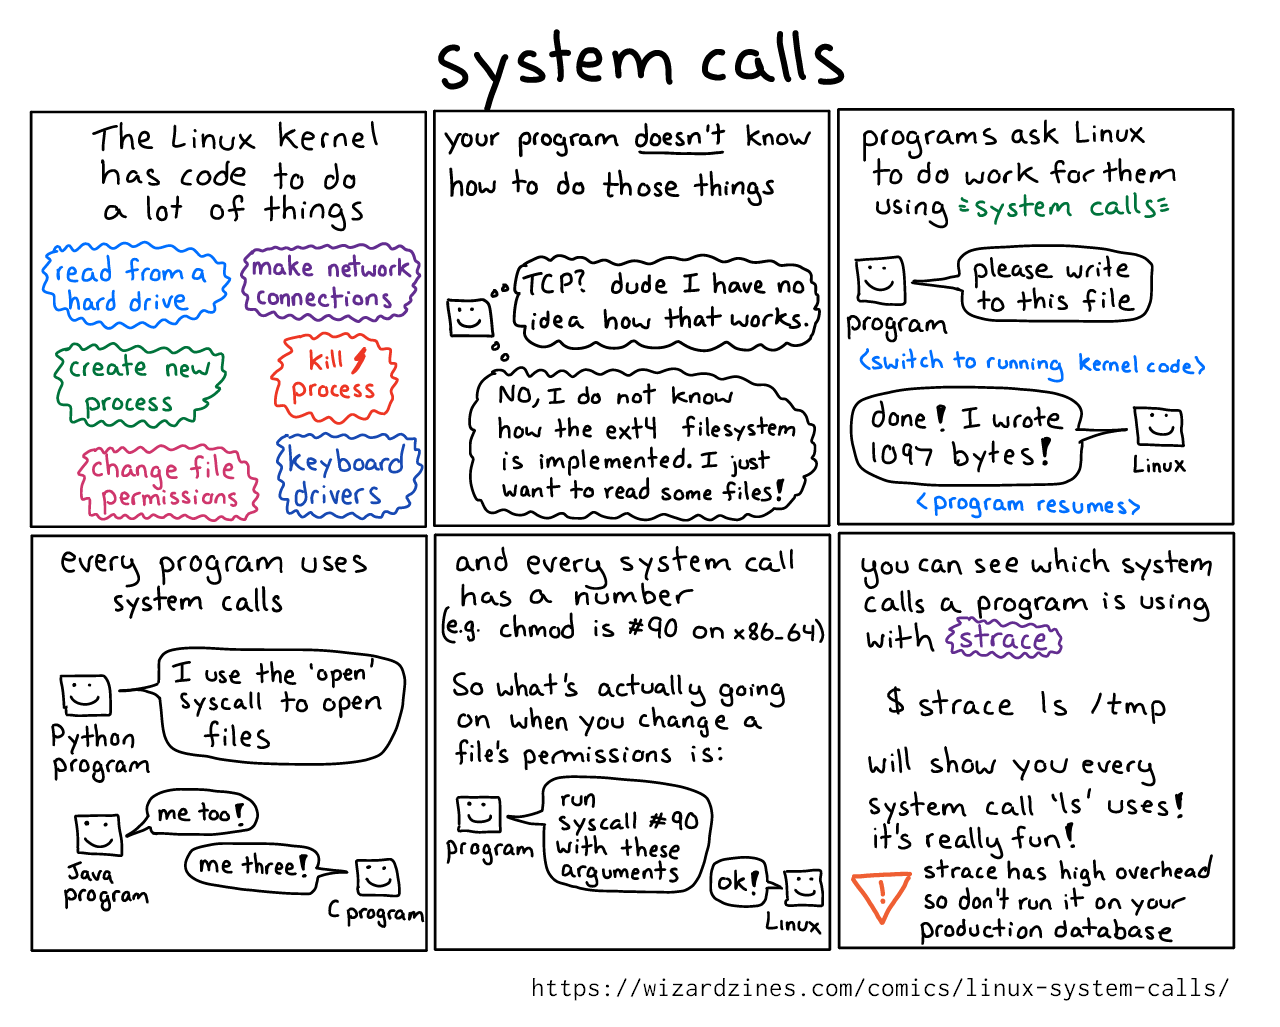 system calls
The Linux kernel
has code to do
a lot of things
read from a
hard drive
make network
connections
create new
process
kill
process
change file
permissions
keyboard
drivers
your program doesn't know
how to do those things
TCP? dude I have no
idea how that works.
NO, I do not know
how the ext4 filesystem
is implemented. I just
want to read some files!
programs ask Linux
to do work for them
using =system calls=
please write
to this file
program
<switch to running kernel code>
done! I wrote
1097 bytes!
Linux
<program resumes>
every program uses
system calls
I use the 'open'
syscall to open
files
Python
program
me too!
Java
program
me three!
C program
and every system call
has a number
(e.g. chmod is #90 on x86_64)
So what's actually going
on when you change a
file's permissions is:
run
syscall #90
with these
arguments
program
ok!
Linux
you can see which system
calls a program is using
with strace
$ strace ls /tmp
will show you every
system call 'ls' uses!
it's really fun!
!
strace has high overhead
so don't run it on your
production database
https://wizardzines.com/comics/linux-system-calls/